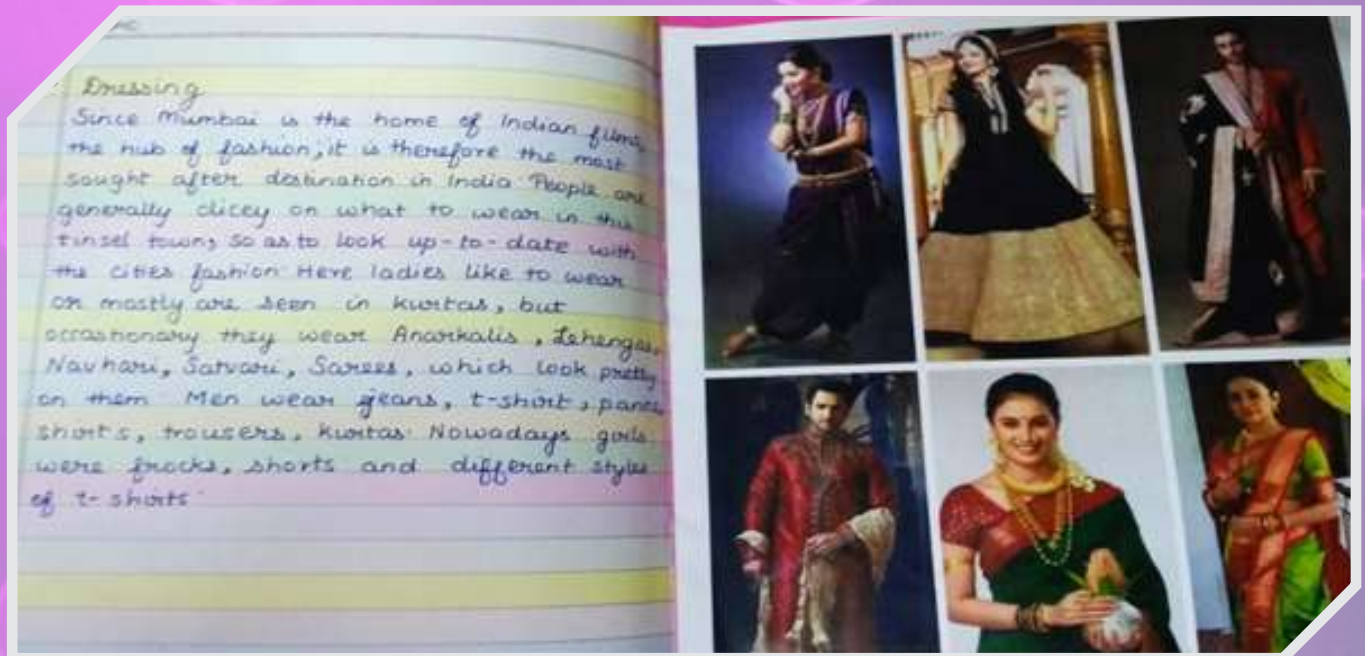 Dressing
Since Mumbai is the home of Indian films,
the hub of fashion, it is therefore the most
sought after destination in India People are
generally dicey on what to wear in this
tinsel town, so as to look up-to-date with
the cities fashion Here ladies like to wear
or mostly are seen in kurtas, but
occashionary they wear Anarkalis, Lehengas,
Navhari, Satvari, Sarees, which look pretty
on them Men wear jeans, t-shirt, pants,
shirts, trousers, kurtas Nowadays girls
were frocks, shorts and different styles
of t-shirts